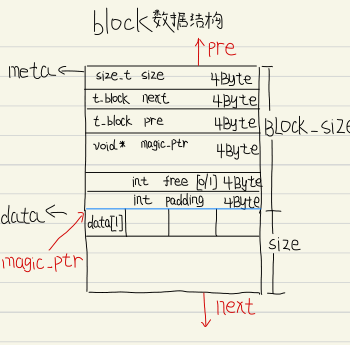 block数据结构
pre
meta
size_t size 4Byte
t_block next 4Byte
t_block pre 4Byte
BLOCK_size
void* magic_ptr 4Byte
int free [0/1] 4Byte
int padding 4Byte
data
data[1]
size
magic_ptr
next